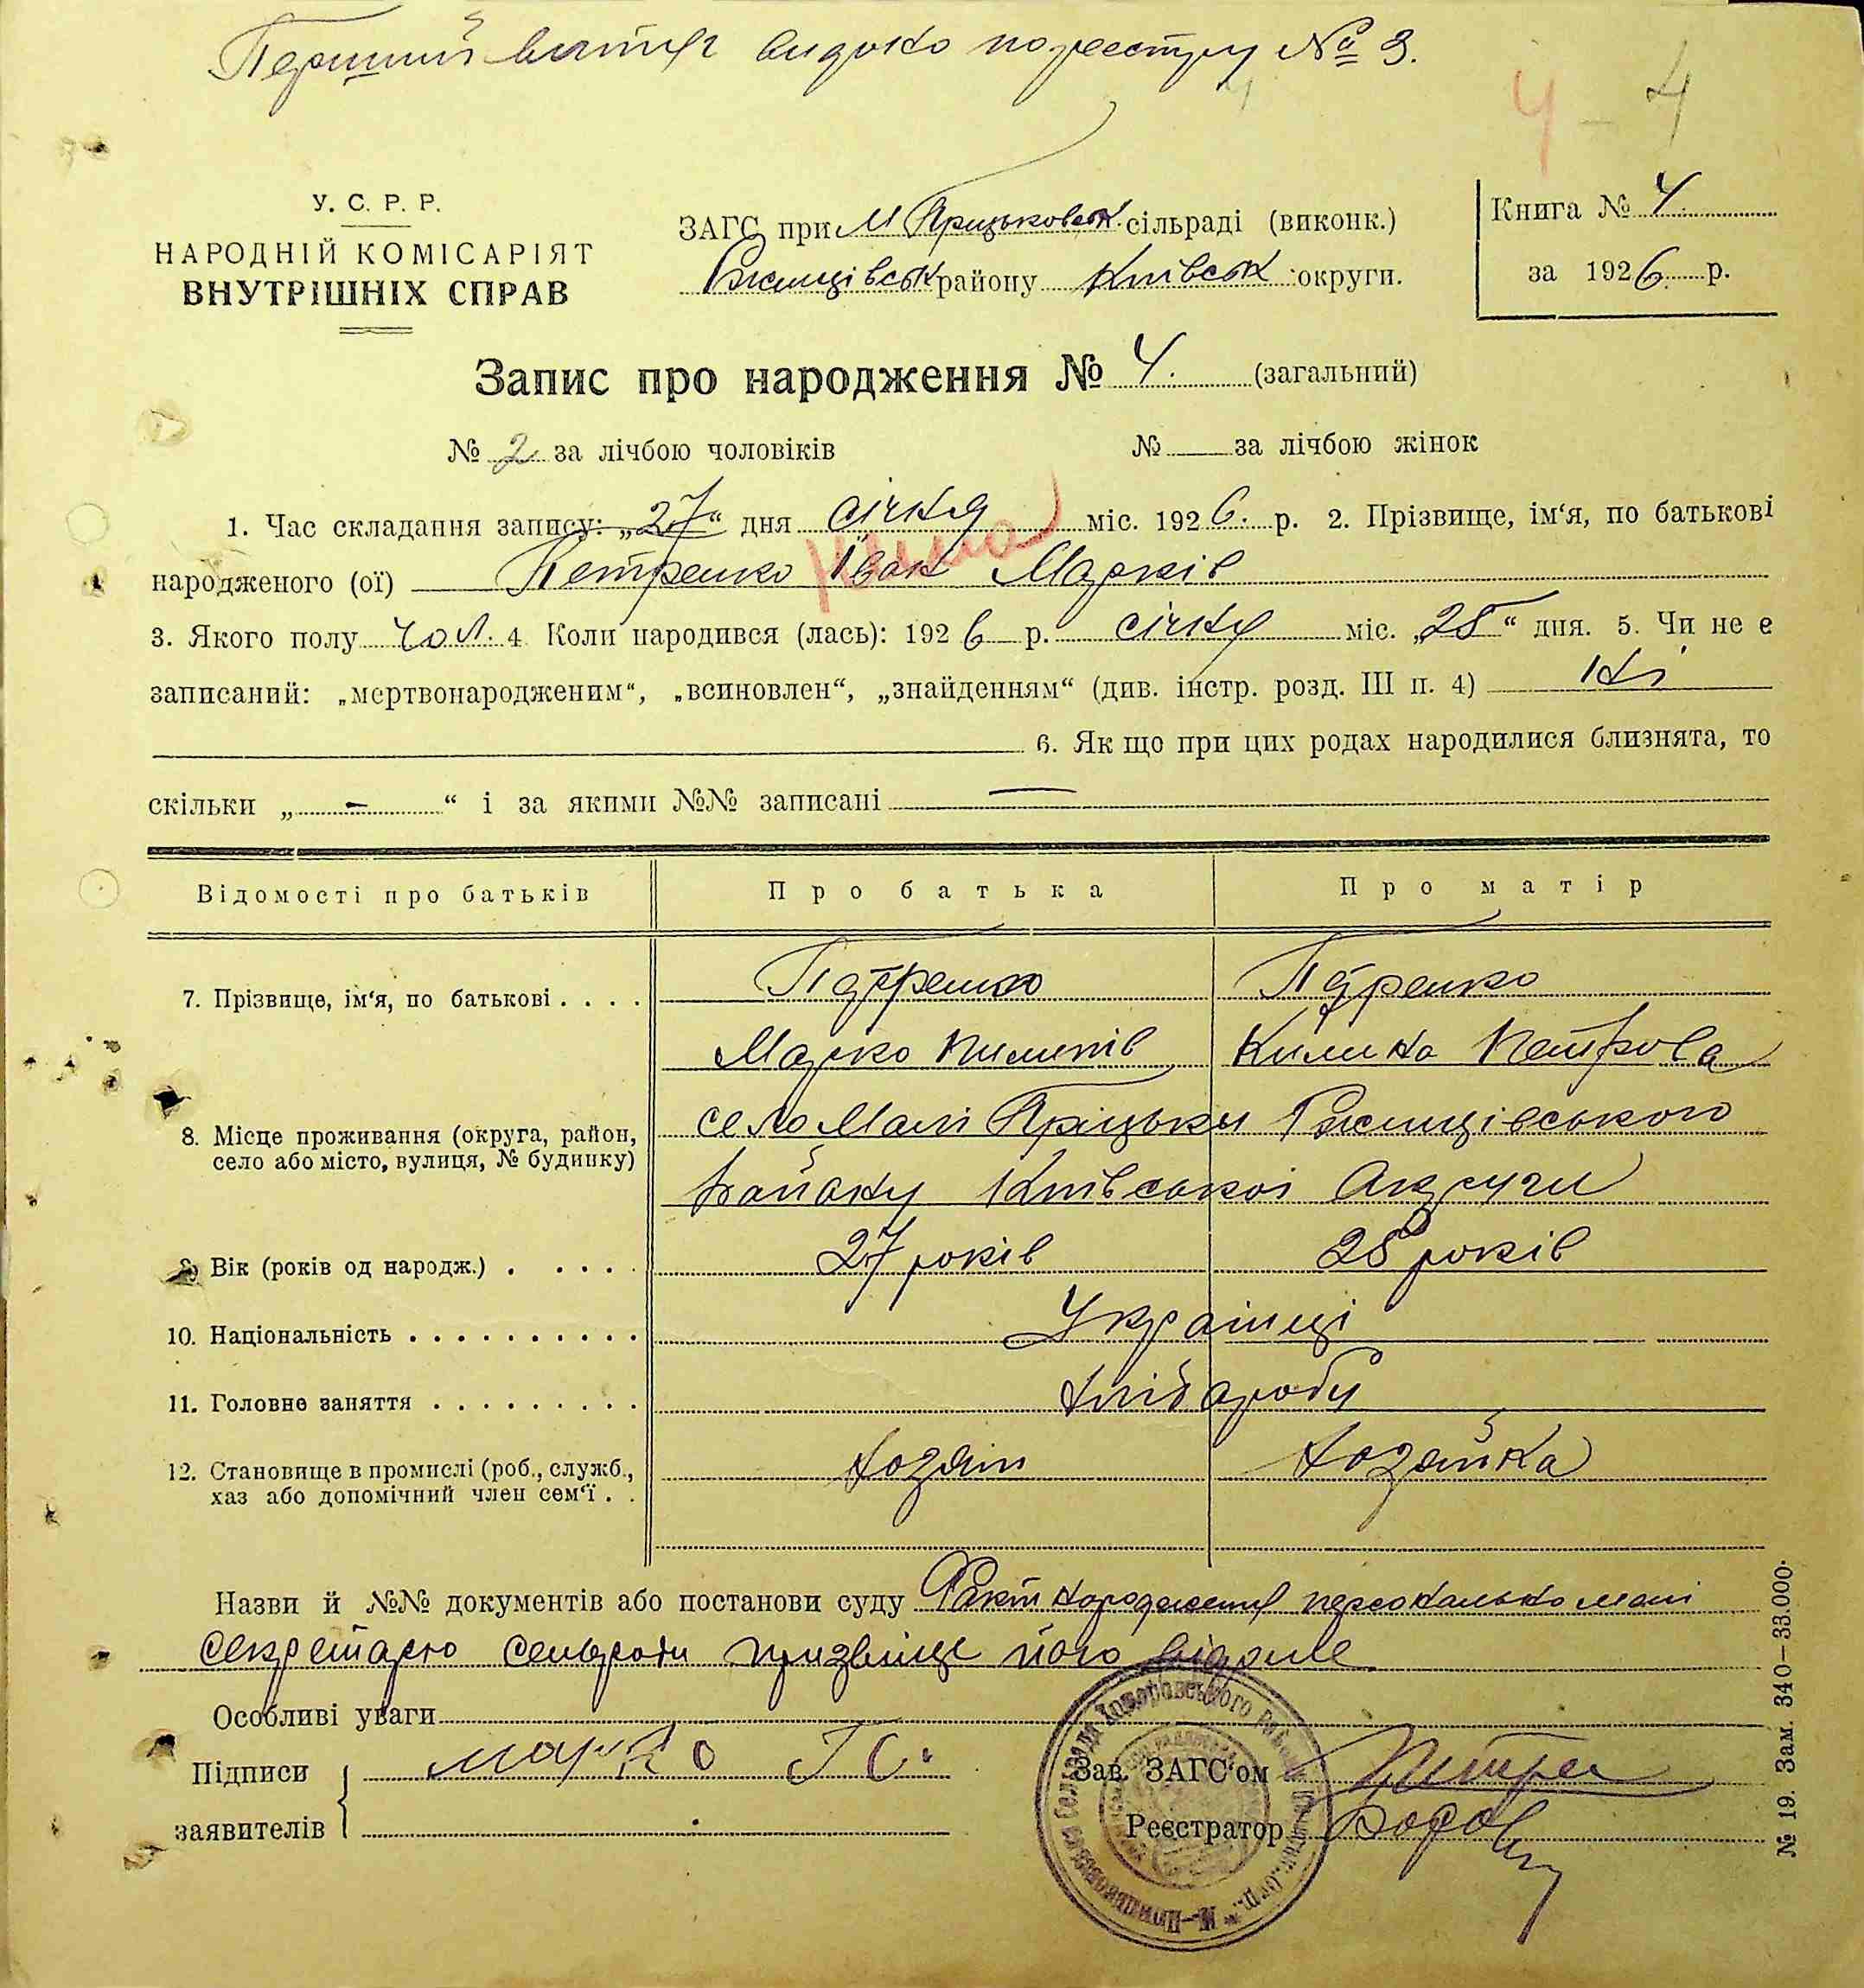 Перший витяг видано по реестру № 3.
4 - 4
У. С. Р. Р.
НАРОДНІЙ КОМІСАРІЯТ
ВНУТРІШНІХ СПРАВ
ЗАГС при М Прицьковск. сільраді (виконк.)
Ржищівськ району Київськ округи.
Книга № 4
за 1926 р.
Запис про народження № 4. (загальний)
№ 2 за лічбою чоловіків № за лічбою жінок
1. Час складання запису: „27“ дня січня міс. 1926. р. 2. Прізвище, ім‘я, по батькові
народженого (ої) Петренко Іван Марків
3. Якого полу чол. 4 Коли народився (лась): 1926 р. січня міс. „25“ дня. 5. Чи не е
записаний: „мертвонародженим“, „всиновлен“, „знайденням“ (див. інстр. розд. III п. 4) Ні
6. Як що при цих родах народилися близнята, то
скільки „ — “ і за якими №№ записані —
Відомості про батьків Про батька Про матір
7. Прізвище, ім‘я, по батькові . . . . Петренко Петренко
Марко Пилипів Килина Петрова
8. Місце проживання (округа, район, село Малі Пріцьки Ржищівського
село або місто, вулиця, № будинку) Району Київськоі Округи
9. Вік (років од народж.) . . . . . 27 років 28 років
10. Національність . . . . . . . . . . Украінці
11. Головне заняття . . . . . . . . . хліборобу
12. Становище в промислі (роб., служб., хозяїн хозяйка
хаз або допомічний член сем‘ї . .
Назви й №№ документів або постанови суду Факт народження персонально мені
секретарю сельради призвище його відоме
Особливі уваги
Підписи Марко П
заявителів
Зав. ЗАГС‘ом
Реєстратор
№ 19. Зам. 340–33.000.